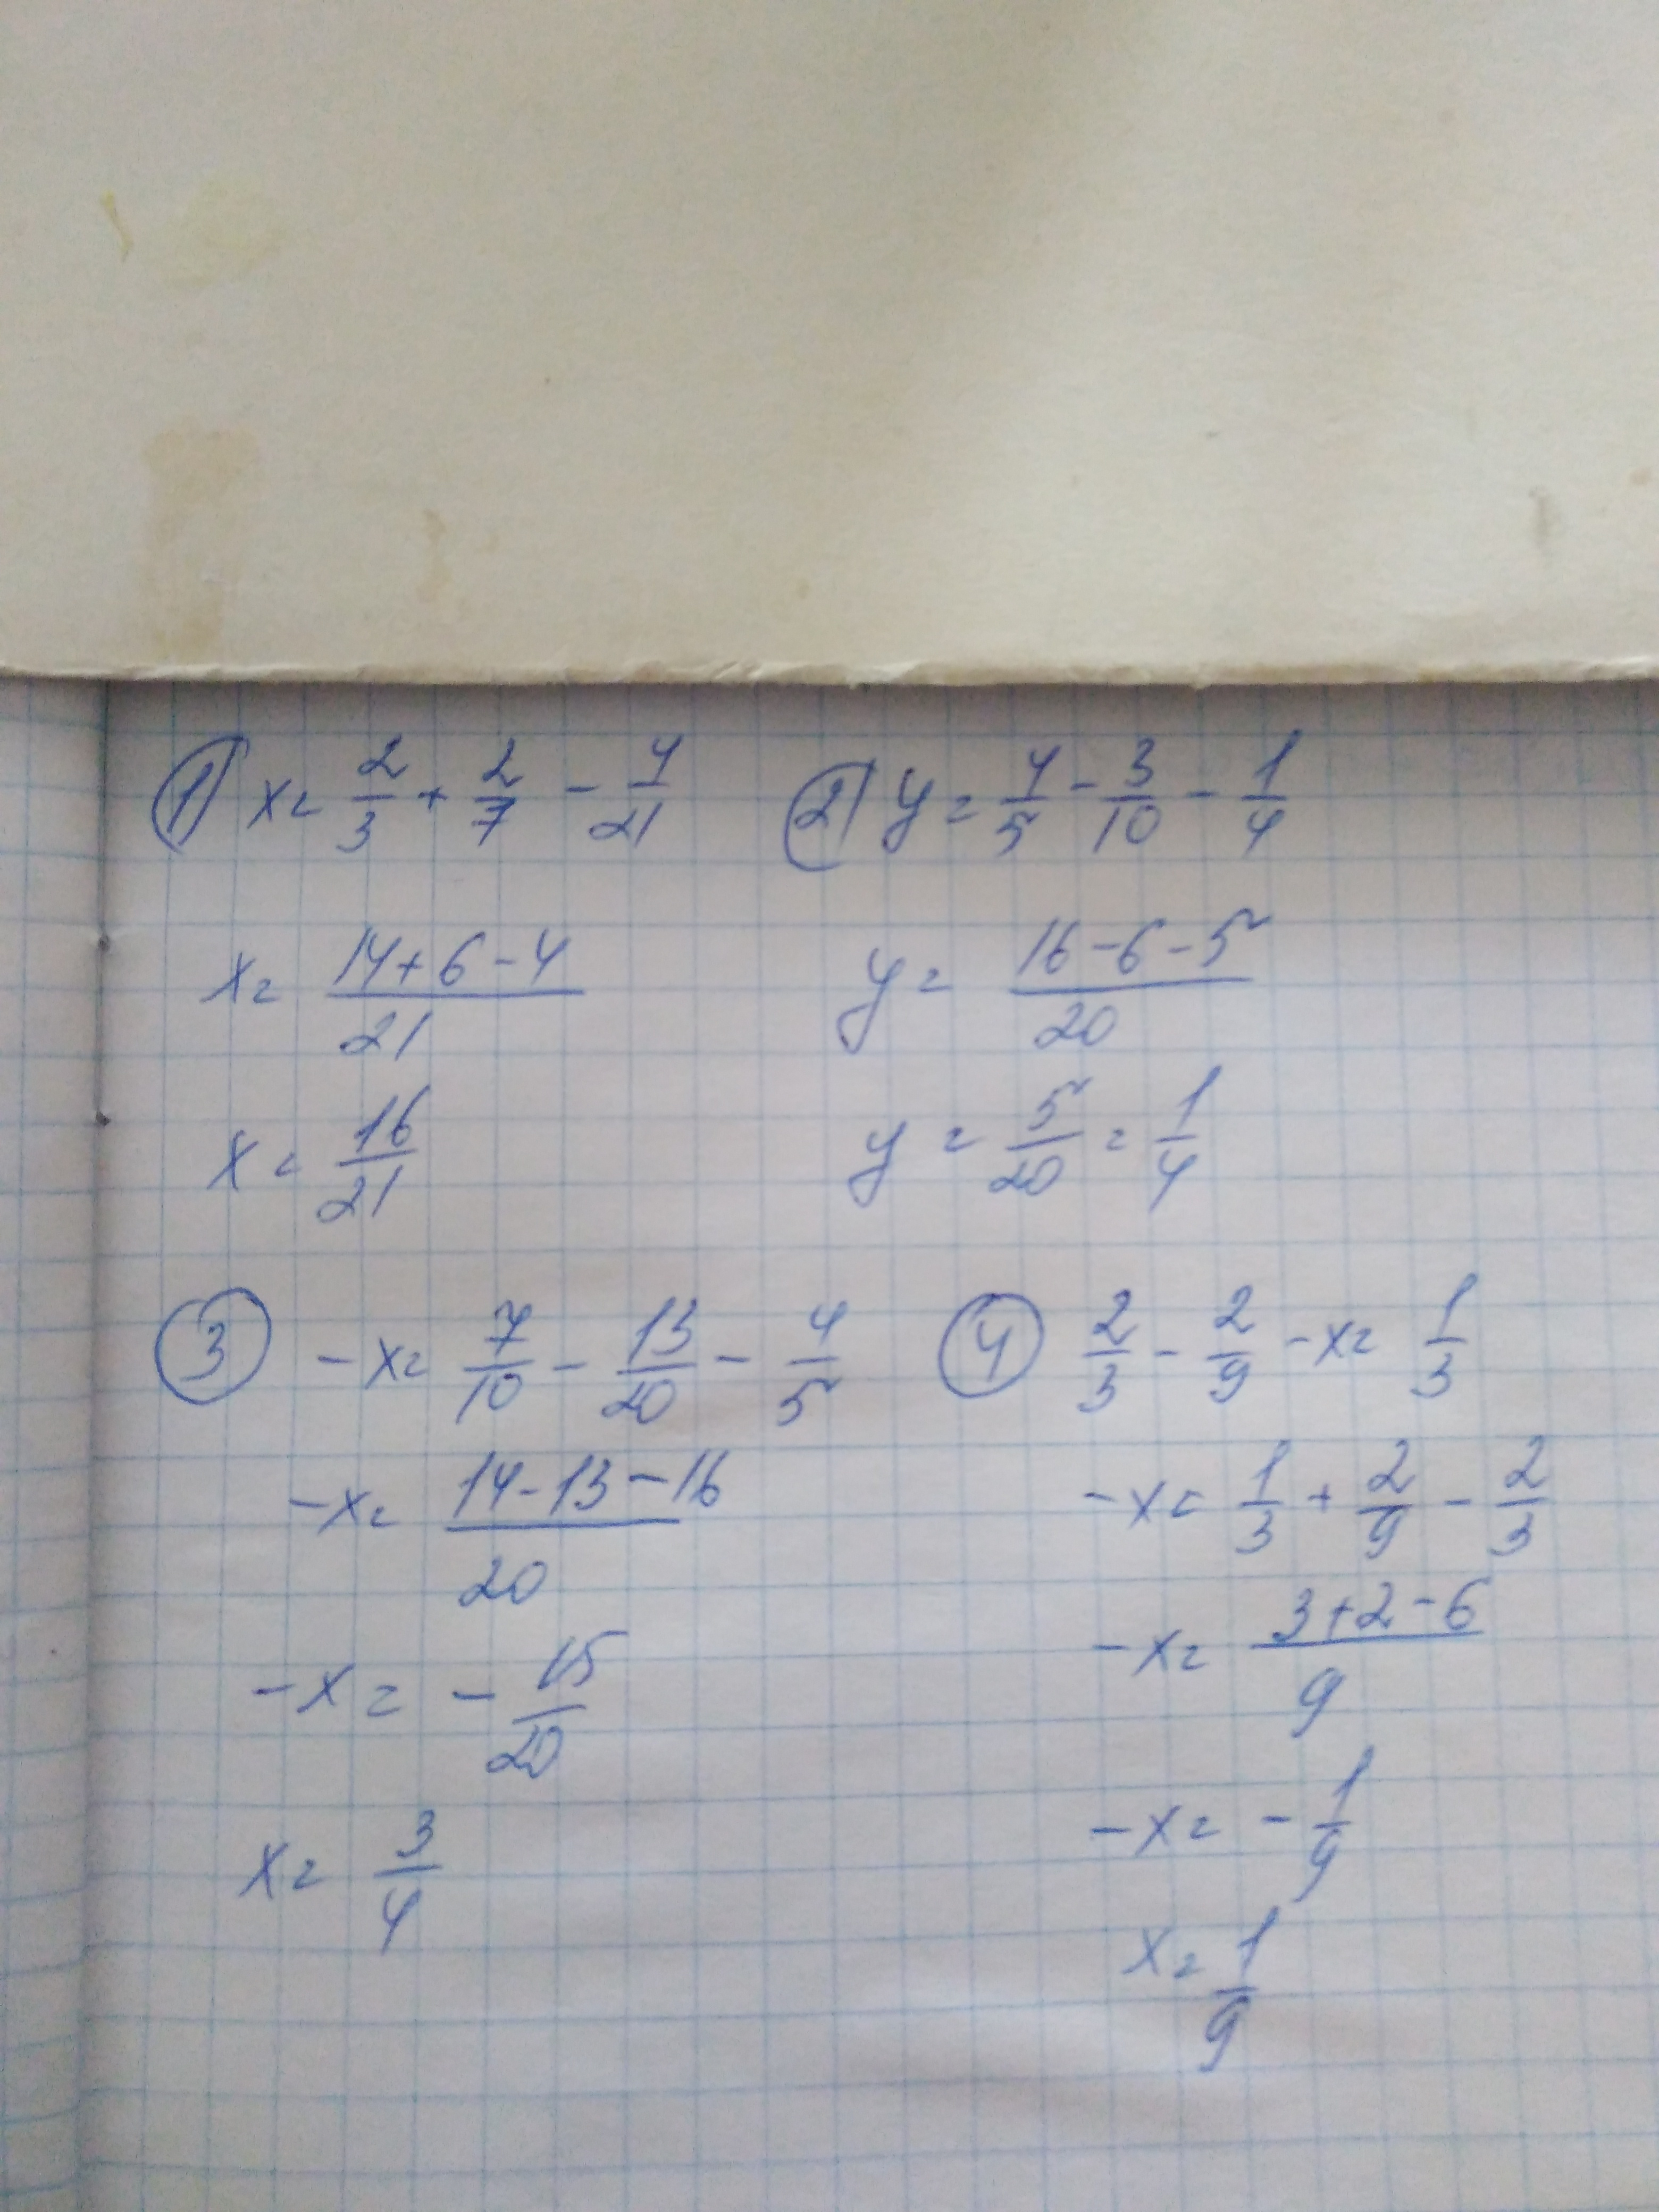 ① x = 2/3 + 2/7 - 4/21
x = (14+6-4)/21
x = 16/21
② y = 4/5 - 3/10 - 1/4
y = (16-6-5)/20
y = 5/20 = 1/4
③ -x = 7/10 - 13/20 - 4/5
-x = (14-13-16)/20
-x = -15/20
x = 3/4
④ 2/3 - 2/9 - x = 1/3
-x = 1/3 + 2/9 - 2/3
-x = (3+2-6)/9
-x = -1/9
x = 1/9